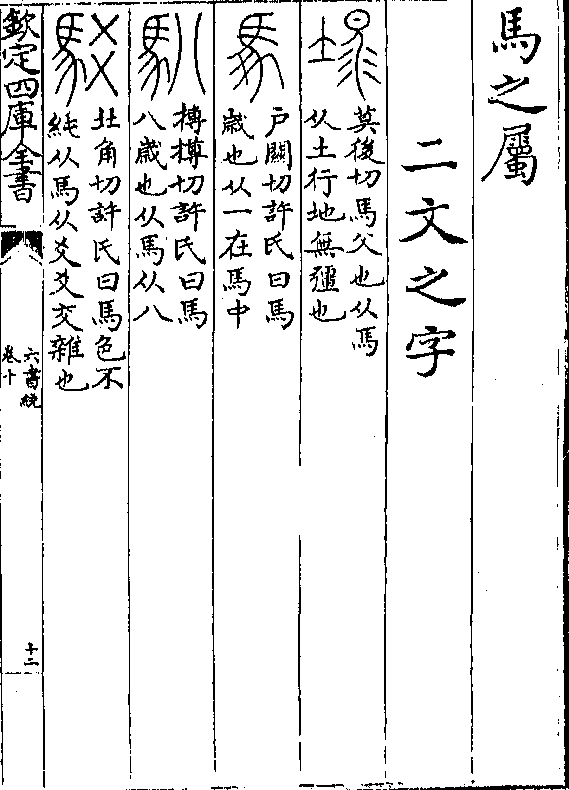 馬之屬
二文之字
莫後切馬父也从馬
从土行地無彊也
戸關切許氏曰馬
歲也从一在馬中
切許氏曰馬
八歲也从馬从八
北角切許氏曰馬色不
純从馬从爻爻交雜也
欽定四庫全書
六書統
卷十
十二